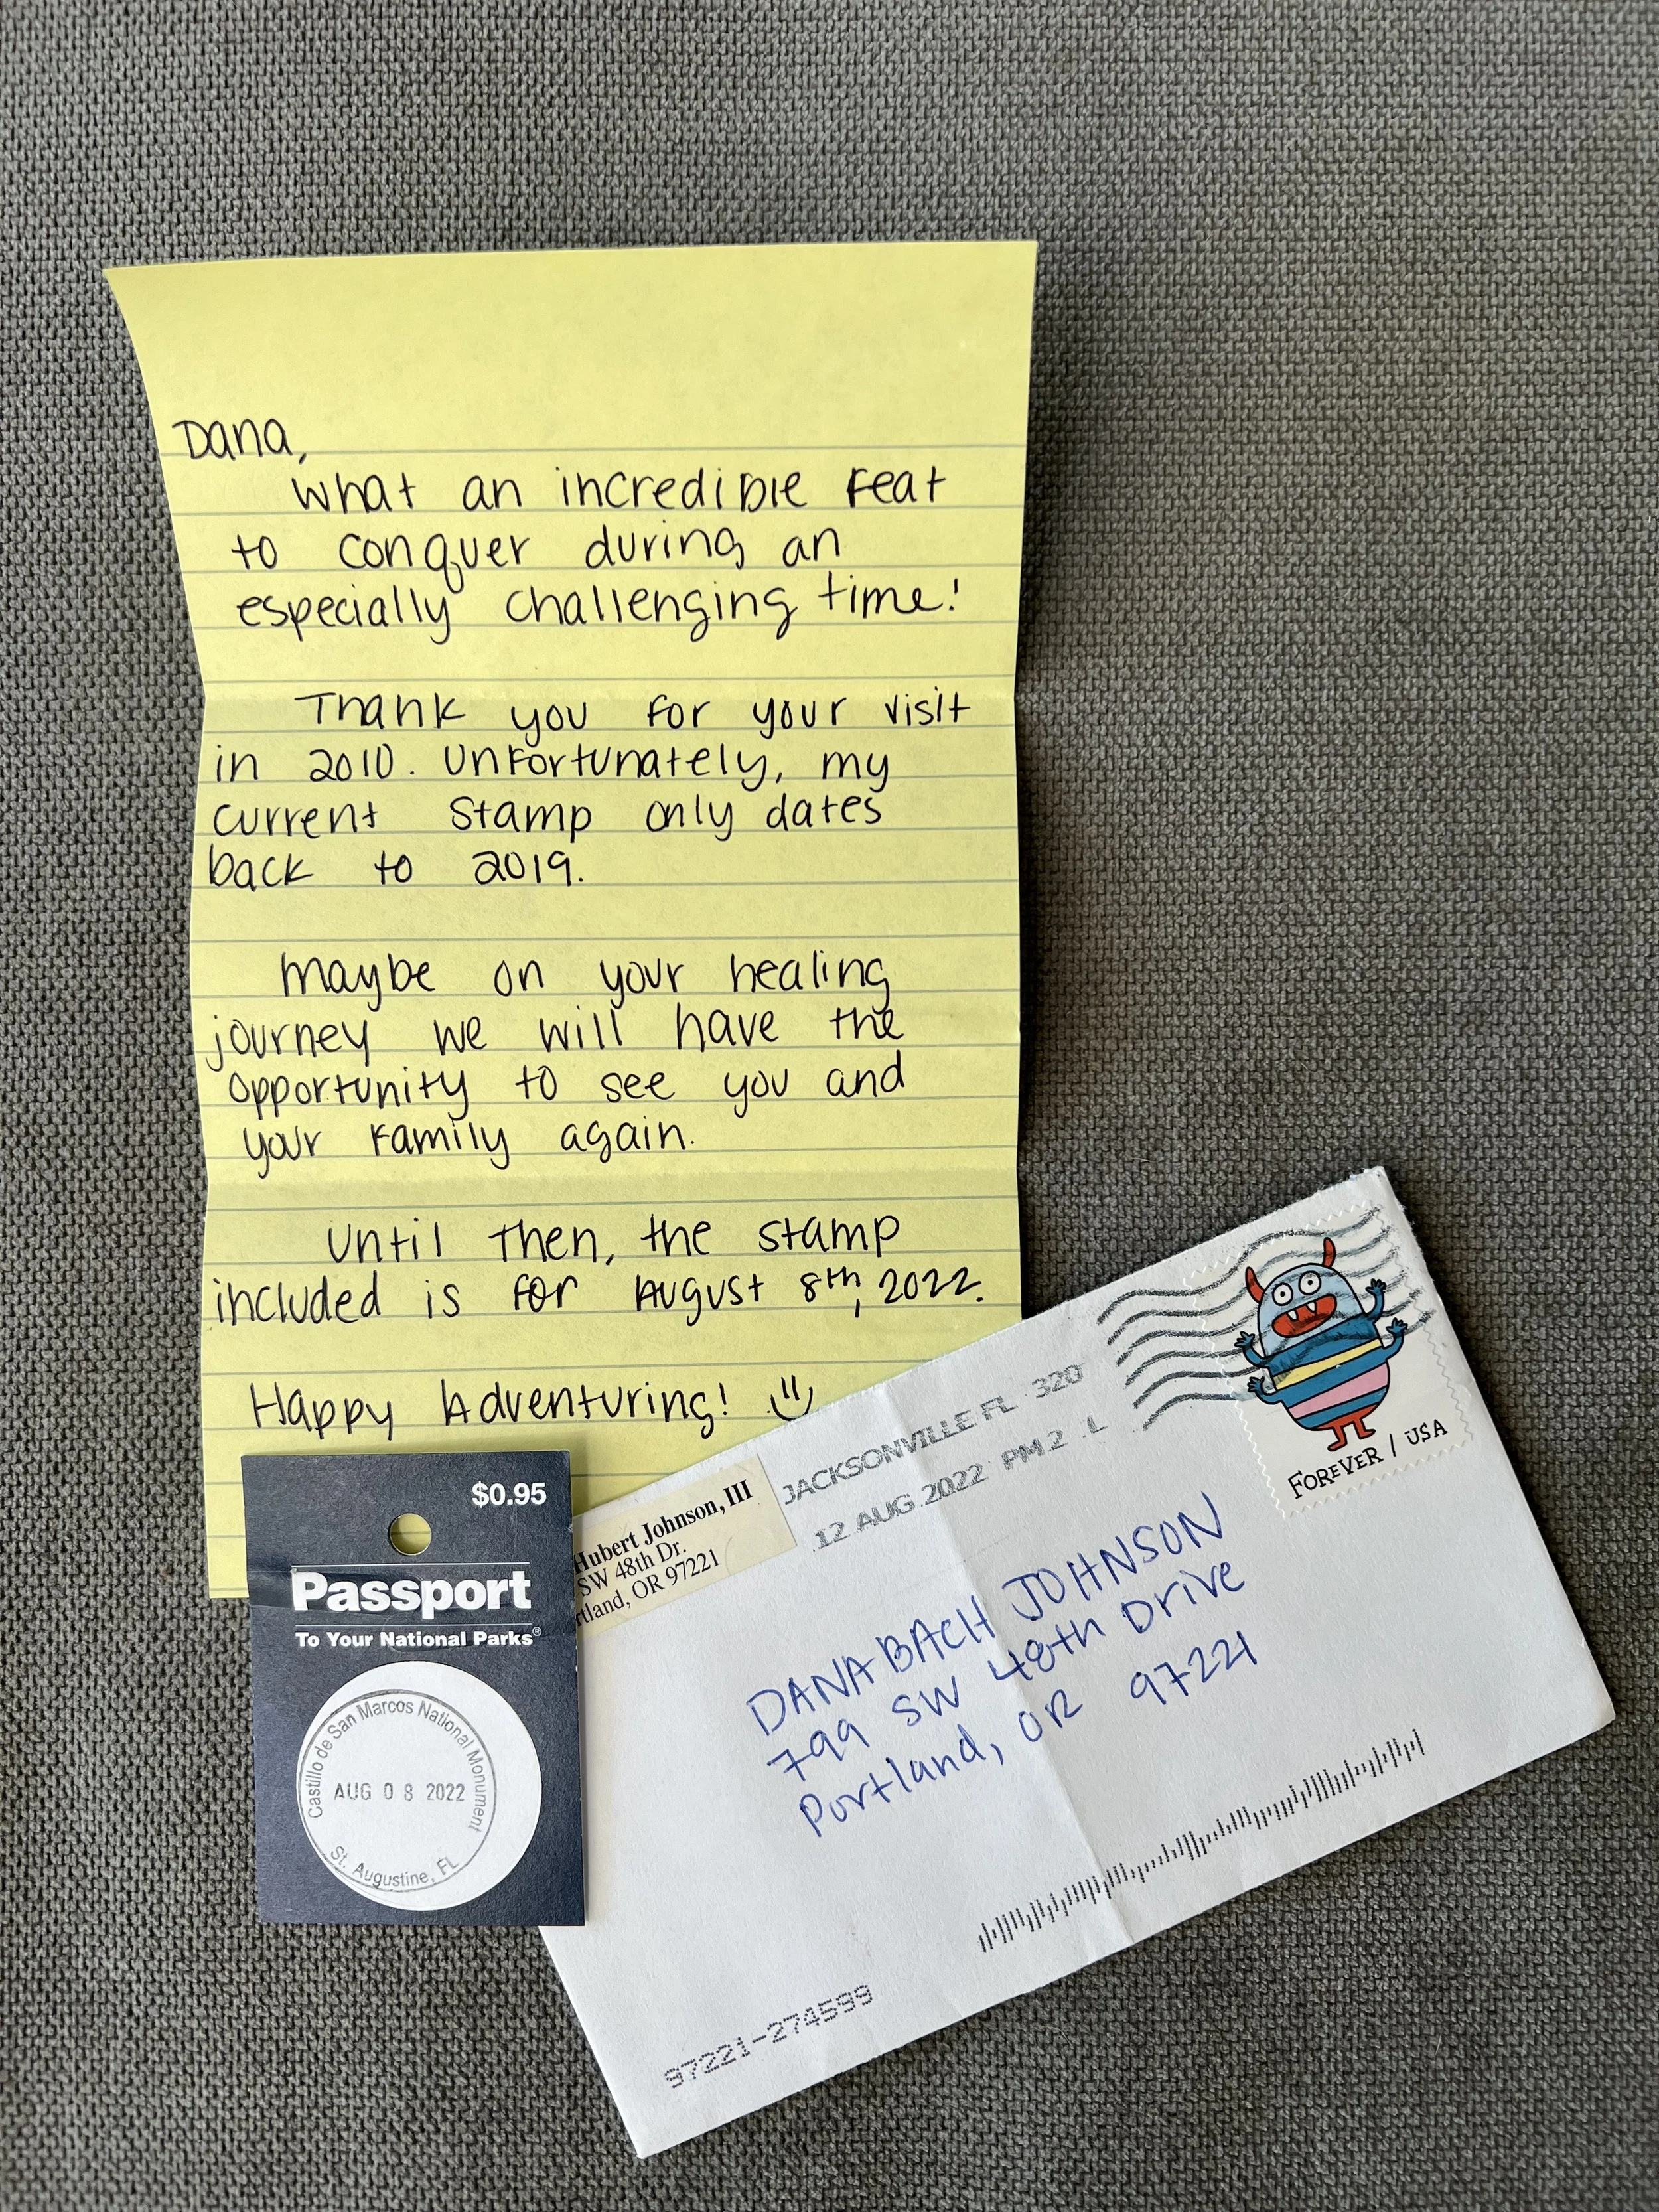 Dana,
What an incredible feat
to conquer during an
especially challenging time!
Thank you for your visit
in 2010. Unfortunately, my
current stamp only dates
back to 2019.
Maybe on your healing
journey we will have the
opportunity to see you and
your family again.
Until then, the stamp
included is for August 8th, 2022.
Happy Adventuring!
$0.95
Passport
To Your National Parks®
Castillo de San Marcos National Monument
AUG 08 2022
St. Augustine, FL
Hubert Johnson, III
SW 48th Dr.
rtland, OR 97221
JACKSONVILLE FL 320
12 AUG 2022 PM 2 L
FOREVER / USA
DANA BACH JOHNSON
799 SW 48th Drive
Portland, OR 97221
97221-274599